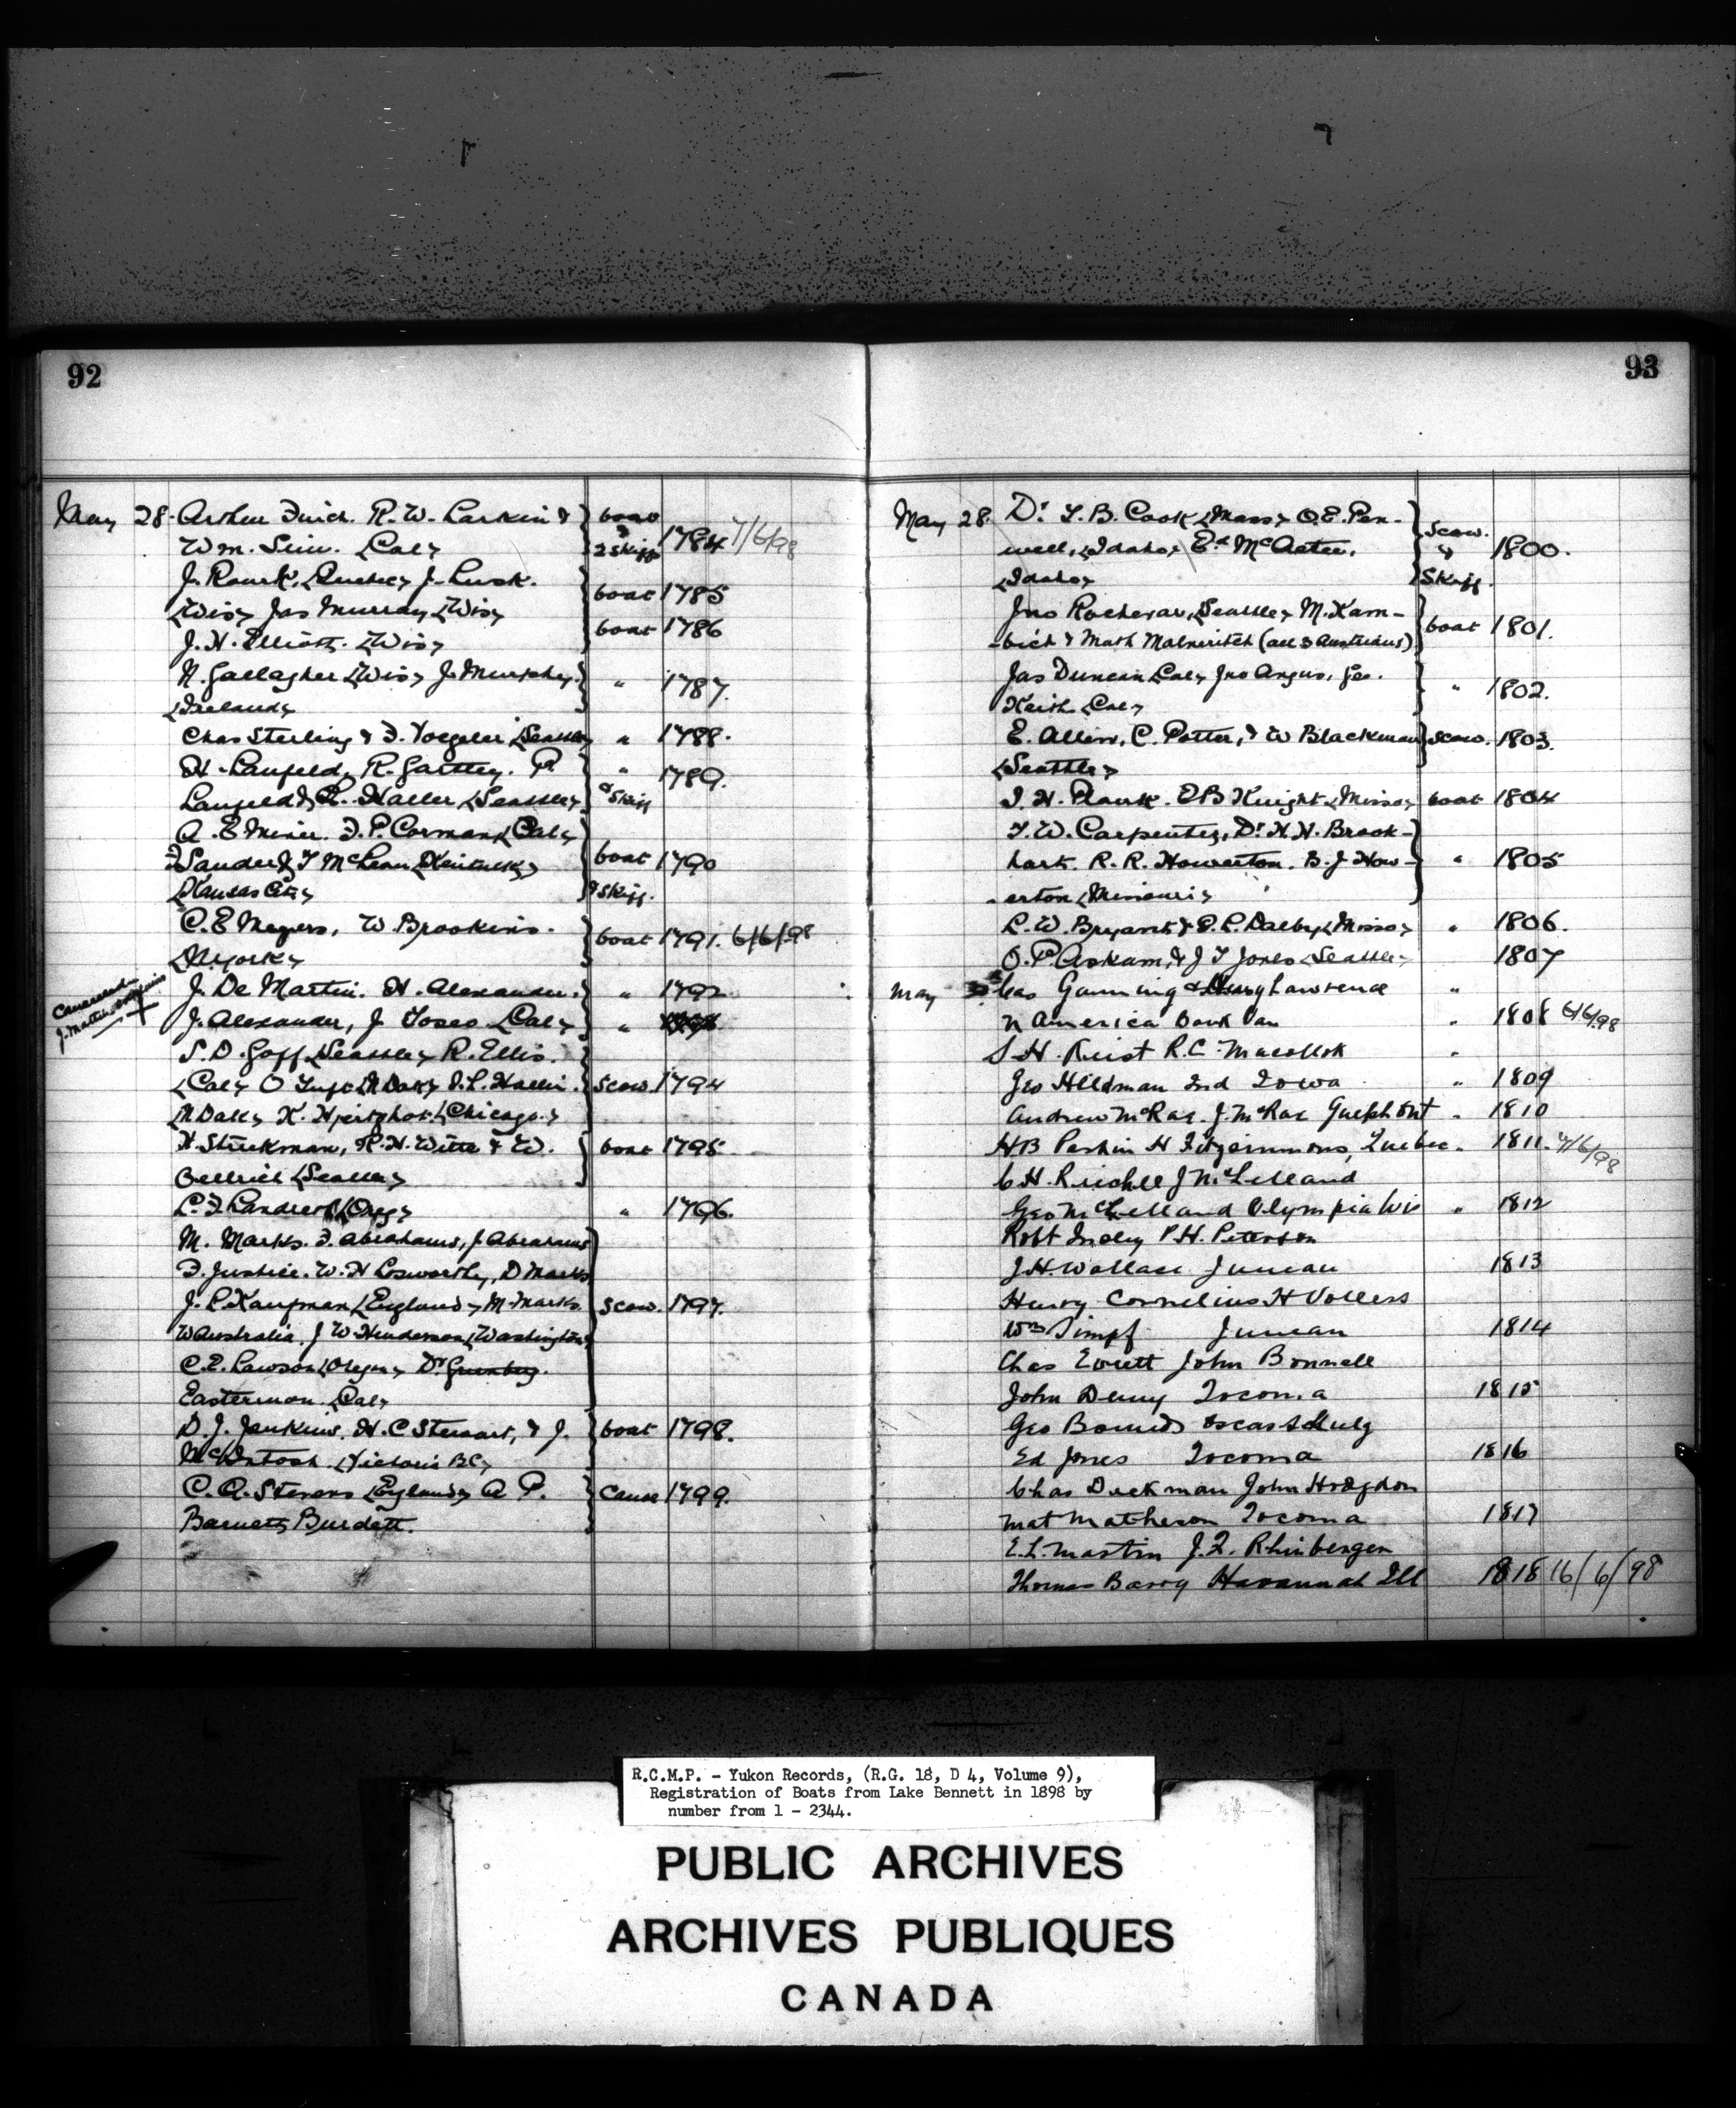 92
May 28. Arthur Finch. R. W. Larkin & boat
Wm. Sim. <Cal> & 2 Skiffs 1784 7/6/98
J. Rourk, <Quebec> J. Lusk.
<Wis> Jas Murray <Wis> boat 1785
J. H. Elliott. <Wis> boat 1786
N. Gallagher <Wis> J. Murphy. " 1787.
<Ireland>
Chas Sterling & F. Voegeler <Seattle> " 1788.
H. Laufeld, R. Garttey. P. " 1789.
Laufeld & R. Haller <Seattle> & Skiff
A. E Minir. F. P. Corman <Cal>
F Sander & T McLean <Kentucky> boat 1790
<Kansas City> & Skiff.
C. E Meyers, W. Brookins. boat 1791. 6/6/98
<N. York>
Cancelled J. Martin
J. De Martin. H. Alexander. " 1792
J. Alexander, J Toseo <Cal> "
S. D. Goff <Seattle> R. Ellis.
<Cal> O <N Dak> S. L. Hallin. Scow. 1794
<N Dak> K. <Chicago.>
H. Stuckman, R. H. Witte & W. boat 1795
Oellrich <Seattle>
L. F. Landreth <Oreg> " 1796.
M. Marks. F. Abrahams, J. Abrahams
F. Justice. W. H Losworthy, D Marks
J. L. Kaufman <England> M. Marks. Scow. 1797.
W Australia. J W Henderson <Washington>
C. E. Lawson <Oregon> Dr Grunberg.
Easterman <Cal>
D. J. Jenkins. H. C Stewart, & J. boat 1798.
McIntosh <Victoria B.C>
C. A. Stevens <England> A P. Canoe 1799.
Barnett Burdett.
93
May 28. Dr. L. B. Cook <Mass> O. E. Pen- Scow.
well, <Idaho> Ed McAster, & 1800.
<Idaho> Skiff.
Jno Rochevar, <Seattle> M. Kam- boat 1801.
-bich & Math Malneritch (all 3 Austrians)
Jas Duncan <Cal> Jno Angus, Geo. " 1802.
Keith <Cal>
E. Allen, C. Potter, & W Blackman Scow. 1803.
<Seattle>
I. H. Plank. E B Knight <Misso> boat 1804
T. W. Carpenter, Dr. H. H. Brook-
hart. R. R. Howerton. B. J How- " 1805
-erton <Missouri>
L. W. Bryant & E. L. Dalby <Misso> " 1806.
O. P. Askam, & J T Jones <Seattle> 1807
May Chas Gunning & Lawrence "
N America Dawk Van " 1808 6/6/98
S H. Reist R. C. Macollok "
Geo Hildman Ind Iowa " 1809
Andrew McRae. J. McRae Guelph Ont " 1810
H B Perkin H Fitzsimmons, Quebec. 1811. 7/6/98
C H. Reichle J McLelland
Geo McLelland Olympia Wis " 1812
Robt Inoly P. H. Peterson
J. H. Wallace Juneau 1813
Henry Cornelius H Vollers
Wm Simpf Juneau 1814
Chas Everett John Bonnell
John Denny Tocoma 1815
Geo Bounds Oscar Schulz
Ed Jones Tocoma 1816
Chas Deckman John Hodgdon
Mat Matheson Tocoma 1817
E. L. Martin J. F. Rhinbergen
Thomas Barry Havannah Ill 1818 16/6/98
R.C.M.P. - Yukon Records, (R.G. 18, D 4, Volume 9),
Registration of Boats from Lake Bennett in 1898 by
number from 1 - 2344.
PUBLIC ARCHIVES
ARCHIVES PUBLIQUES
CANADA